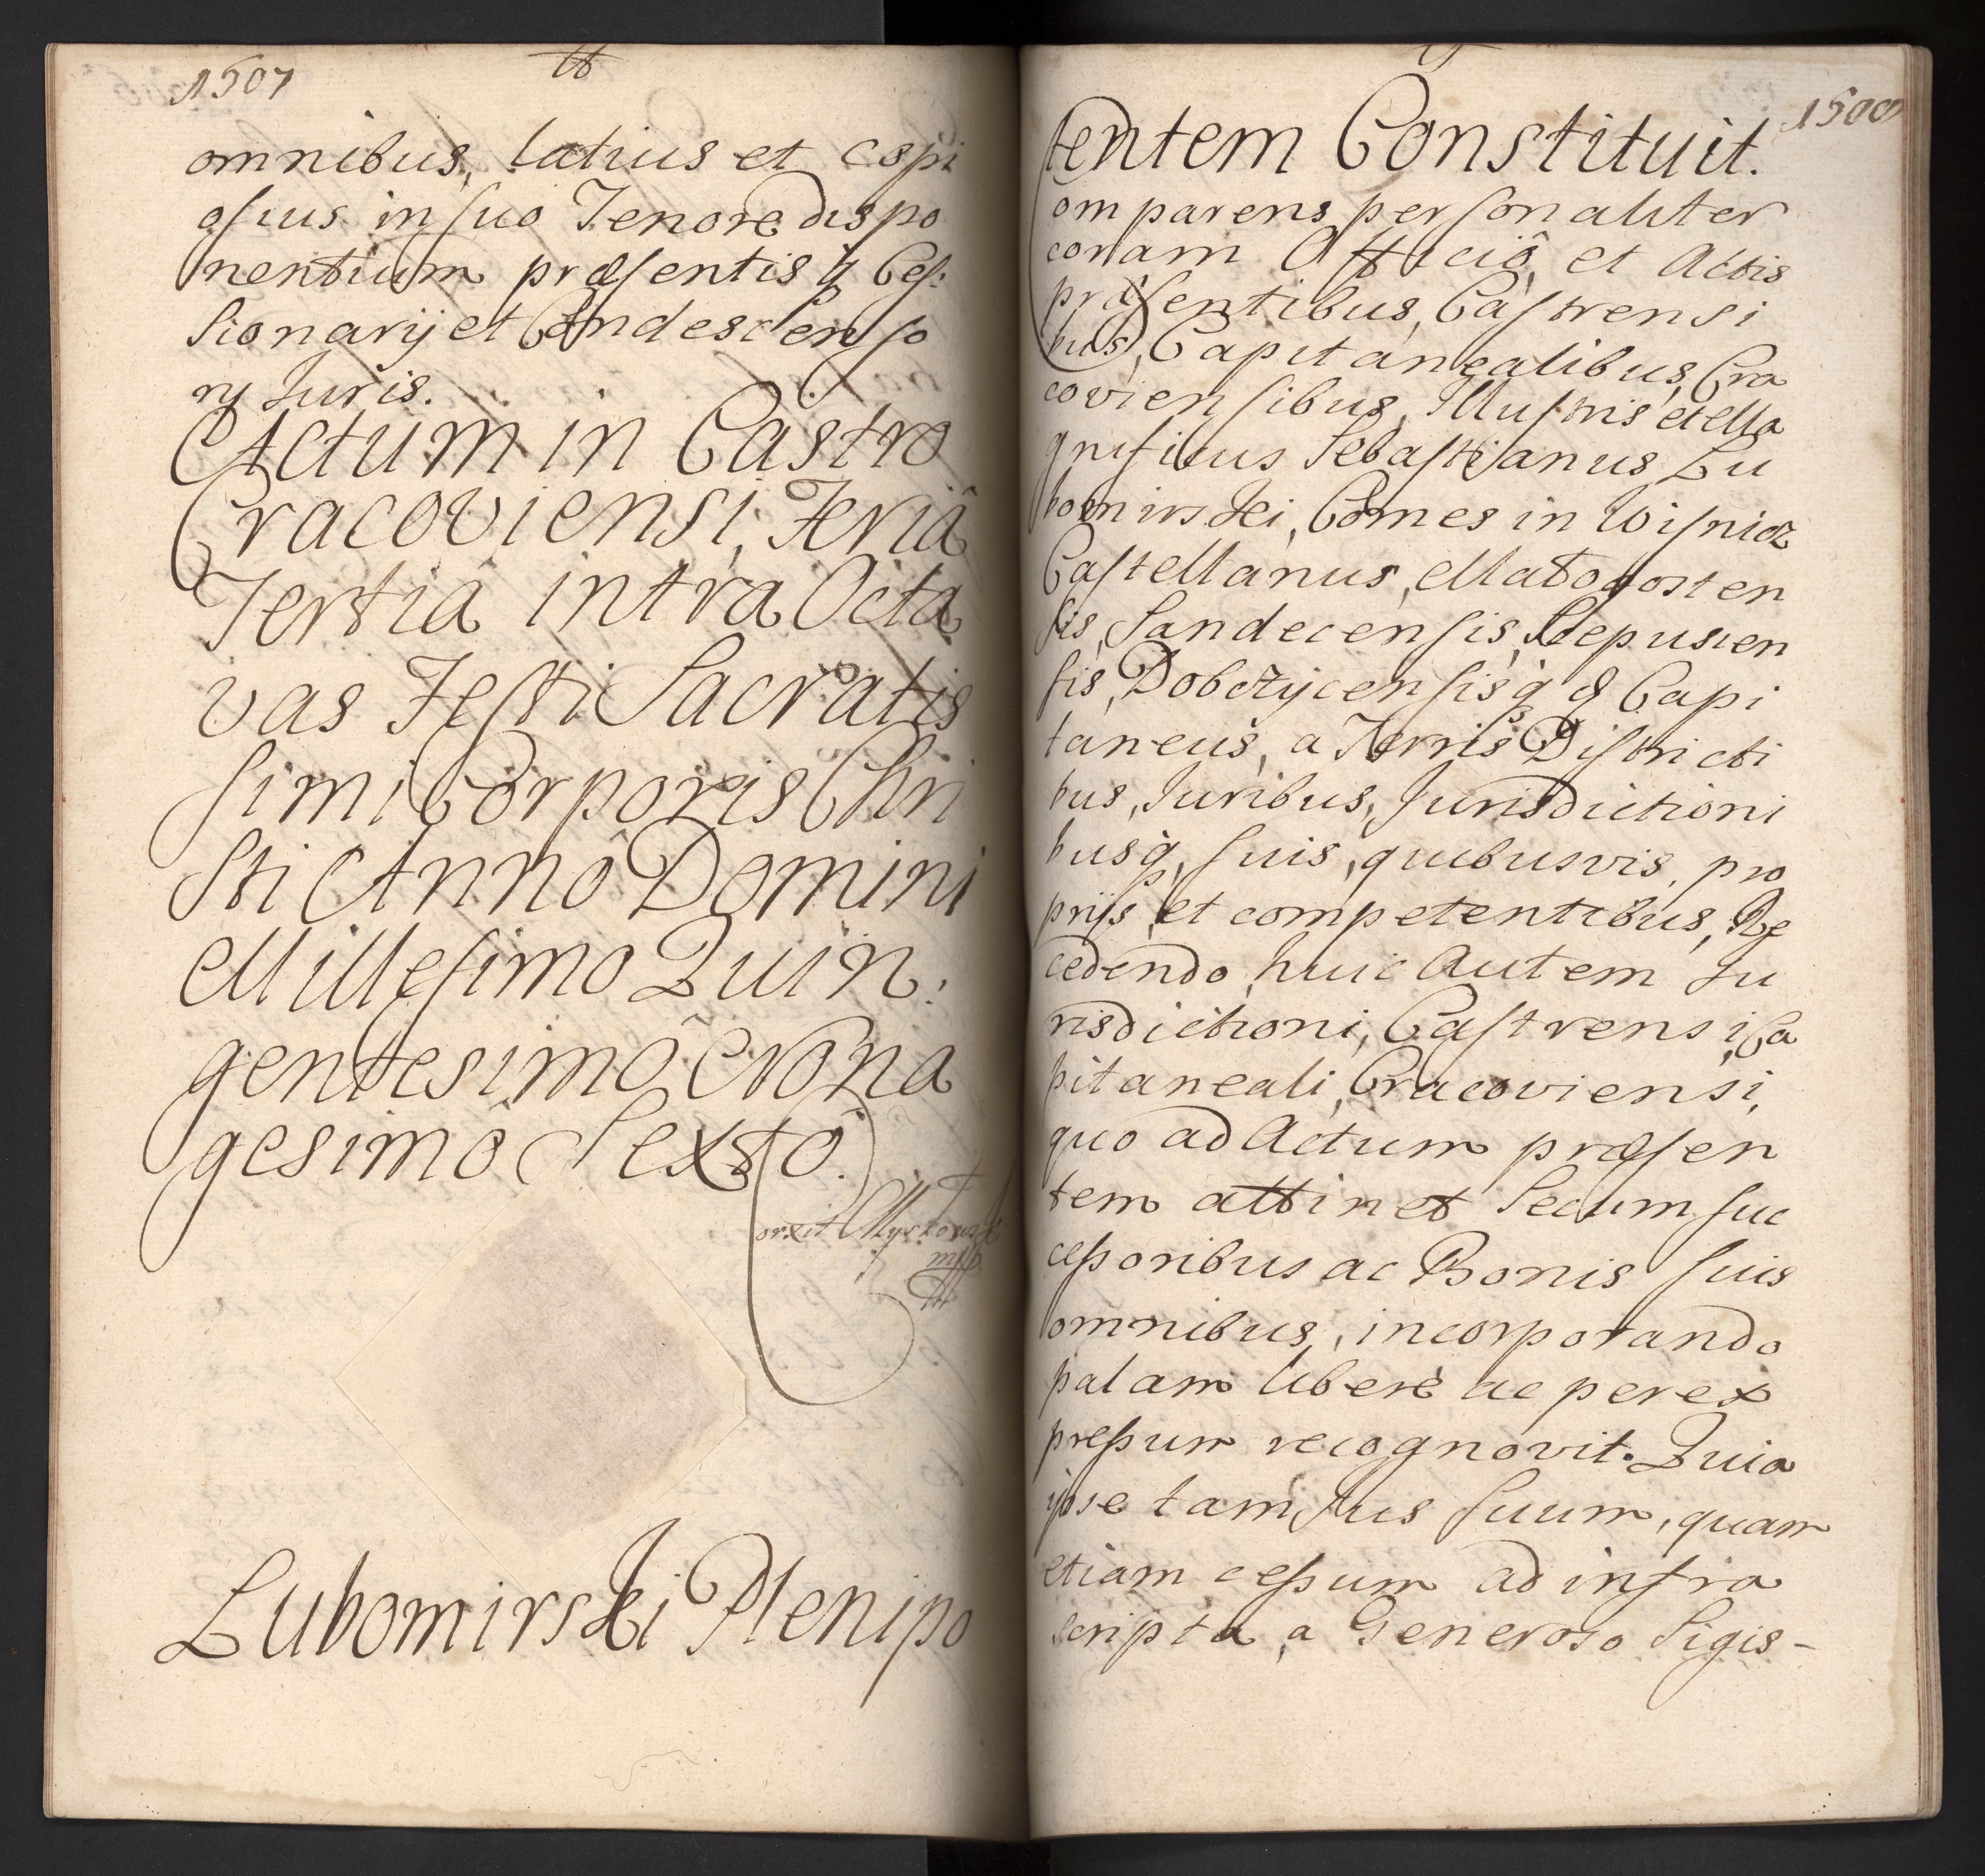 1507
omnibus, latius et copi
osius in suo Tenore dispo
nentium præsentisq́ Ces:
sionarij et Condescenso
rij Juris.
Actum in Castro
Cracoviensi, Feriâ
Tertiâ intra Octa
vas Festi Sacratis
simi Corporis Chri
sti Annô Domini
Millesimo Quin:
gentesimô Nona
gesimô Sextô.
Lubomirski Plenipo
tentem Constituit.
omparens personaliter
coram Officiô, et Actis
præsentibus, Castrensi
bus, Capitanealibus, Cra
coviensibus, Illustris et Ma
gnificus Sebastianus Lu
bomirski, Comes in Wisnicz
Castellanus, Małogosten
sis, Sandecensis, Scepusien
sis, Dobczycensisq́ &c Capi
taneus, a Terris Districti
bus, Juribus, Jurisdictioni
busq́, suis, quibusvis, pro
prijs, et competentibus, Re
cedendo, huic Autem Ju
risdictioni, Castrensi, Ca
pitaneali, Cracoviensi,
quo ad Actum præsen
tem attinet Secum suc
cessoribus ac Bonis suis
omnibus, incorporando
palam liberè ac per ex
pressum recognovit. Quia
ipse tam Jus suum, quam
etiam cessum ad infra
scripta, a Generoso Sigis-